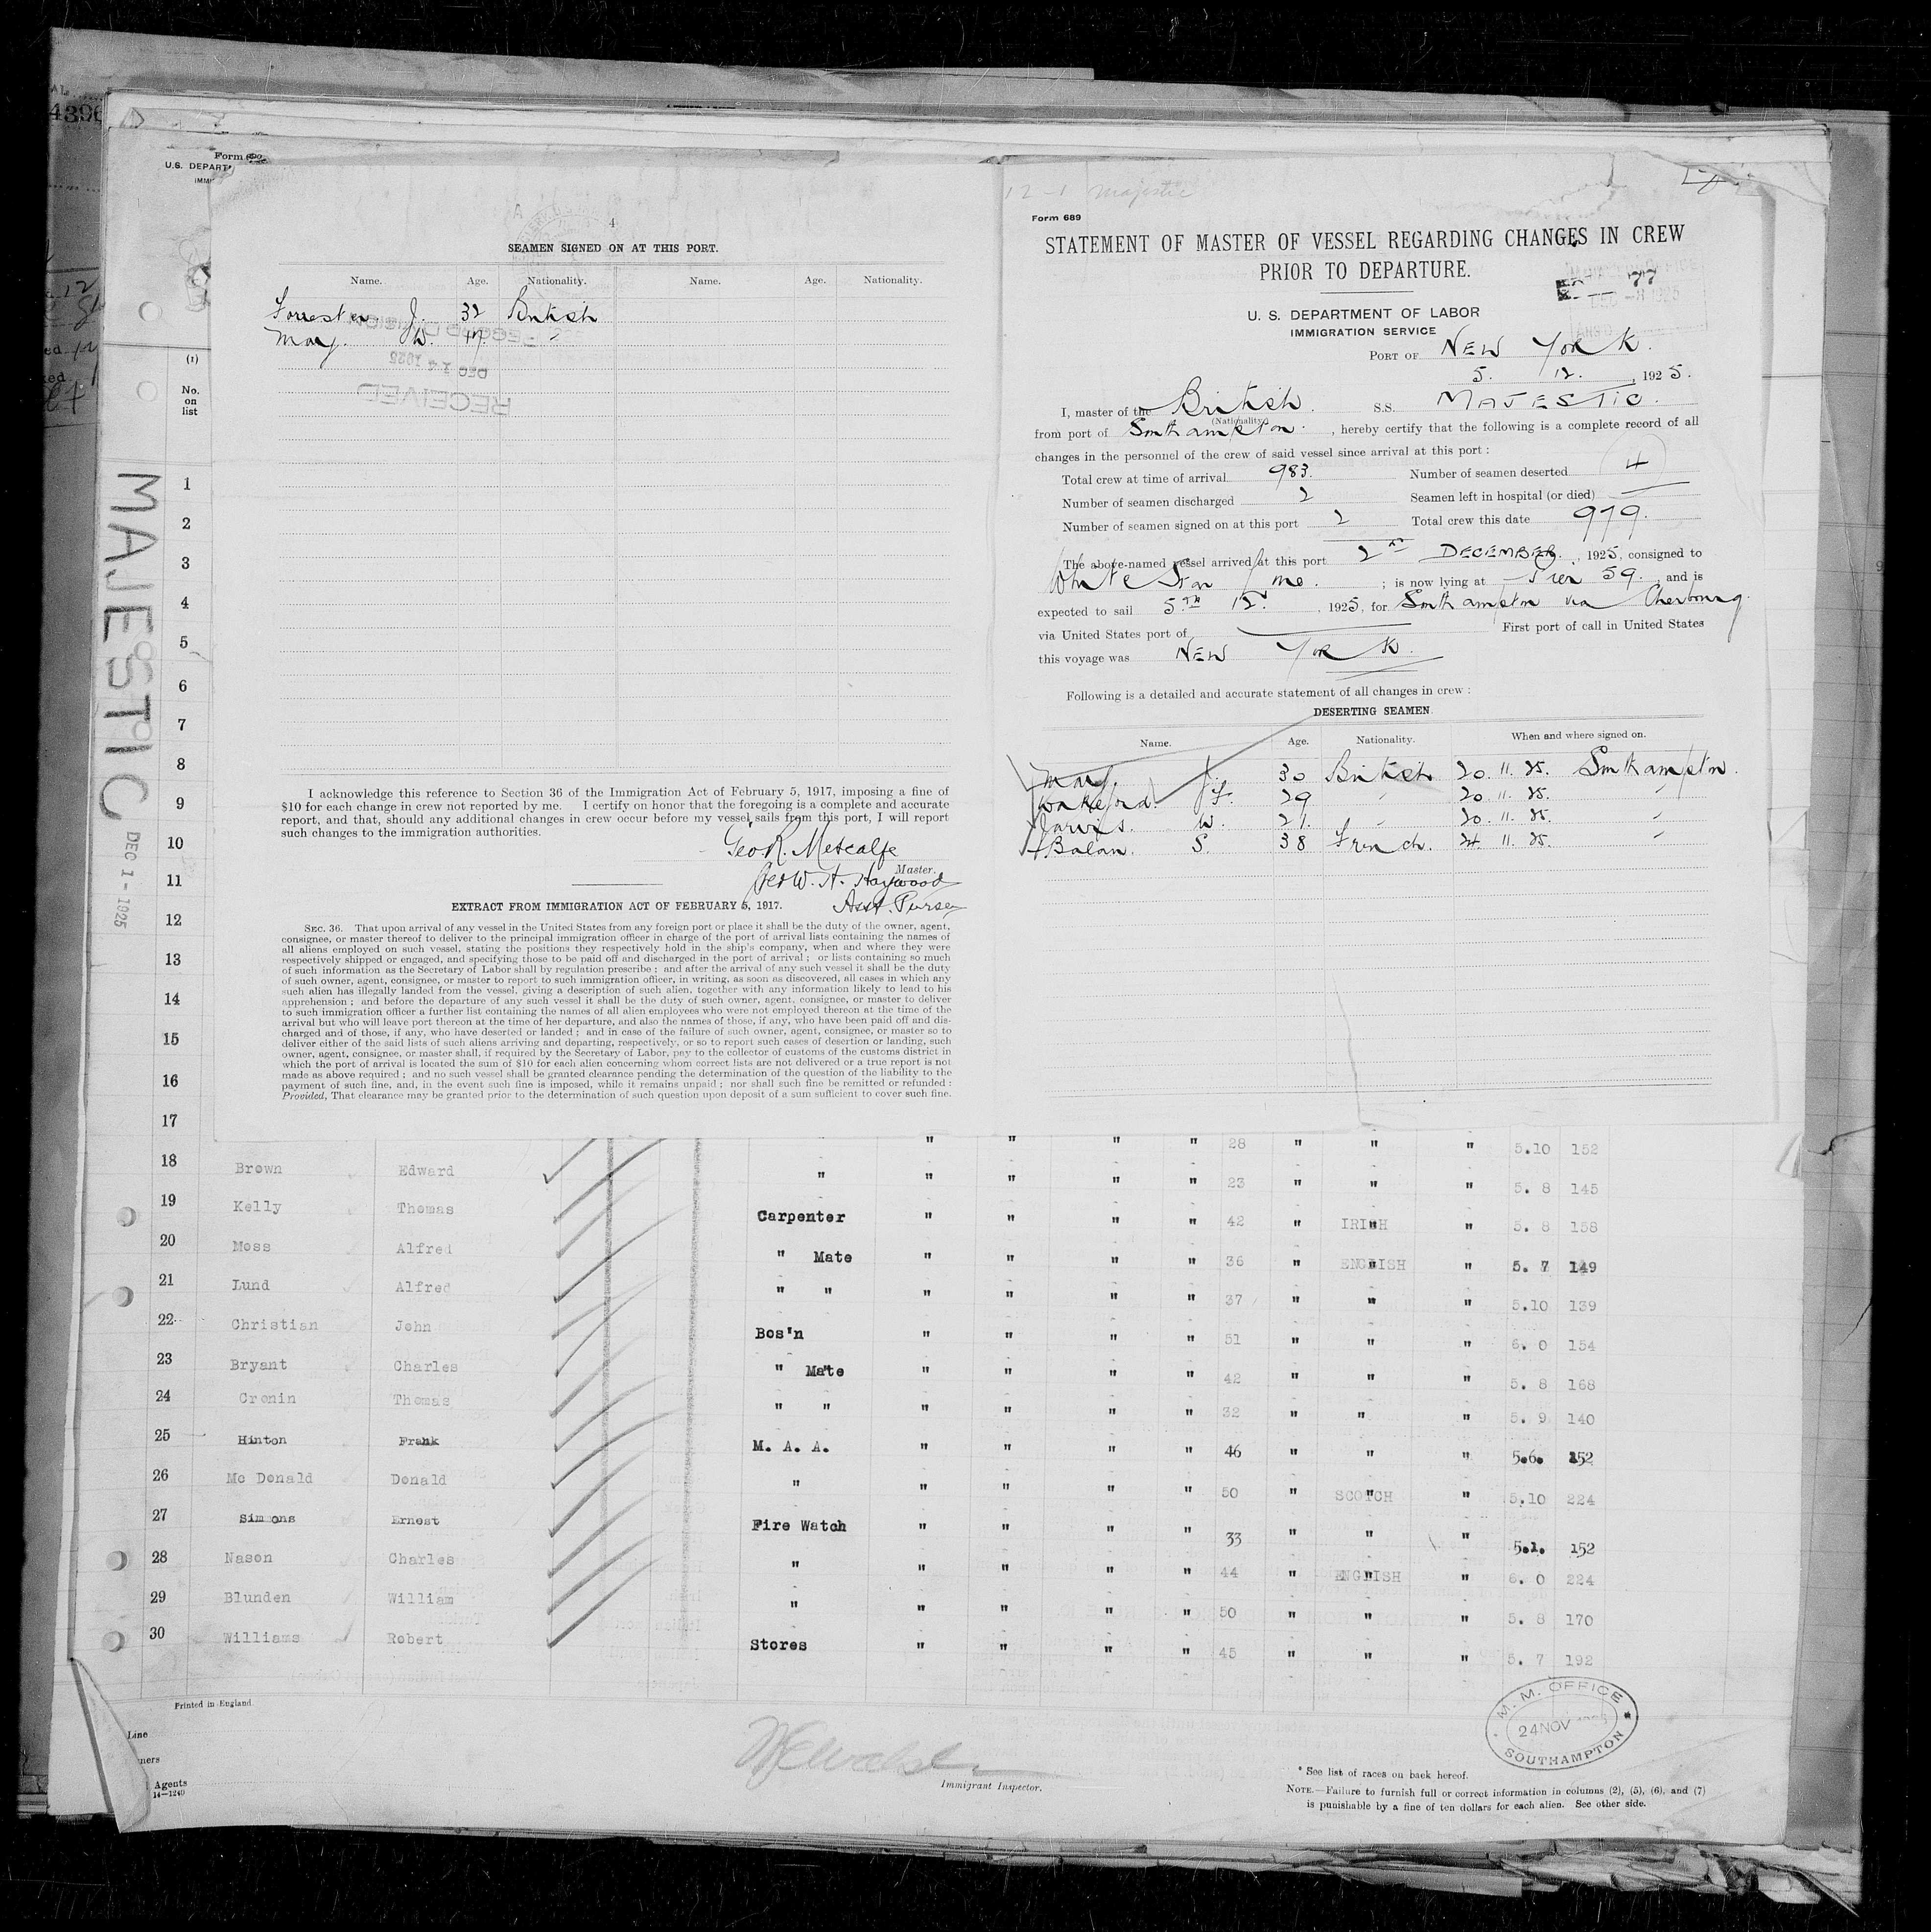 4396
Form
U.S. DEPART
IMMI
4
SEAMEN SIGNED ON AT THIS PORT.
Name. Age. Nationality. Name. Age. Nationality.
Forrester J. 32 British
May. W. 47. "
RECORD DIVISION
DEC 14 1925
RECEIVED
I acknowledge this reference to Section 36 of the Immigration Act of February 5, 1917, imposing a fine of
$10 for each change in crew not reported by me. I certify on honor that the foregoing is a complete and accurate
report, and that, should any additional changes in crew occur before my vessel sails from this port, I will report
such changes to the immigration authorities.
Geo R. Metcalfe
Master.
Geo W. H. Haywood
Asst. Purser
EXTRACT FROM IMMIGRATION ACT OF FEBRUARY 5, 1917.
SEC. 36. That upon arrival of any vessel in the United States from any foreign port or place it shall be the duty of the owner, agent,
consignee, or master thereof to deliver to the principal immigration officer in charge of the port of arrival lists containing the names of
all aliens employed on such vessel, stating the positions they respectively hold in the ship's company, when and where they were
respectively shipped or engaged, and specifying those to be paid off and discharged in the port of arrival; or lists containing so much
of such information as the Secretary of Labor shall by regulation prescribe; and after the arrival of any such vessel it shall be the duty
of such owner, agent, consignee, or master to report to such immigration officer, in writing, as soon as discovered, all cases in which any
such alien has illegally landed from the vessel, giving a description of such alien, together with any information likely to lead to his
apprehension; and before the departure of any such vessel it shall be the duty of such owner, agent, consignee, or master to deliver
to such immigration officer a further list containing the names of all alien employees who were not employed thereon at the time of the
arrival but who will leave port thereon at the time of her departure, and also the names of those, if any, who have been paid off and dis-
charged and of those, if any, who have deserted or landed; and in case of the failure of such owner, agent, consignee, or master so to
deliver either of the said lists of such aliens arriving and departing, respectively, or so to report such cases of desertion or landing, such
owner, agent, consignee, or master shall, if required by the Secretary of Labor, pay to the collector of customs of the customs district in
which the port of arrival is located the sum of $10 for each alien concerning whom correct lists are not delivered or a true report is not
made as above required; and no such vessel shall be granted clearance pending the determination of the question of the liability to the
payment of such fine, and, in the event such fine is imposed, while it remains unpaid; nor shall such fine be remitted or refunded:
Provided, That clearance may be granted prior to the determination of such question upon deposit of a sum sufficient to cover such fine.
12-1 Majestic
Form 689
STATEMENT OF MASTER OF VESSEL REGARDING CHANGES IN CREW
PRIOR TO DEPARTURE.
U. S. DEPARTMENT OF LABOR
IMMIGRATION SERVICE
PORT OF NEW YORK.
5. 12. , 1925.
I, master of the British. S.S. MAJESTIC.
(Nationality)
from port of Southampton. , hereby certify that the following is a complete record of all
changes in the personnel of the crew of said vessel since arrival at this port:
Total crew at time of arrival 983. Number of seamen deserted 4
Number of seamen discharged 2 Seamen left in hospital (or died)
Number of seamen signed on at this port 2 Total crew this date 979.
The above-named vessel arrived at this port 2nd DECEMBER. , 1925, consigned to
White Star Line. ; is now lying at Pier 59. , and is
expected to sail 5TH 12. , 1925, for Southampton via Cherbourg.
via United States port of First port of call in United States
this voyage was NEW YORK.
Following is a detailed and accurate statement of all changes in crew:
DESERTING SEAMEN.
Name. Age. Nationality. When and where signed on.
May J. 30 British 20. 11. 25. Southampton.
Wakeford. F. 29 " 20. 11. 25. "
Jarvis. W. 21. " 20. 11. 25. "
Balan. S. 38 French. 24. 11. 25. "
MAJESTIC
DEC 1 - 1925
(1)
No.
on
list
1
2
3
4
5
6
7
8
9
10
11
12
13
14
15
16
17 " " " " 28 " " " 5.10 152
18 Brown Edward " " " " " 23 " " " 5. 8 145
19 Kelly Thomas Carpenter " " " " 42 " IRISH " 5. 8 158
20 Moss Alfred " Mate " " " " 36 " ENGLISH " 5. 7 149
21 Lund Alfred " " " " " " 37 " " " 5.10 139
22 Christian John Bos'n " " " " 51 " " " 6. 0 154
23 Bryant Charles " Mate " " " " 42 " " " 5. 8 168
24 Cronin Thomas " " " " " " 32 " " " 5. 9 140
25 Hinton Frank M. A. A. " " " " 46 " " " 5.6. 152
26 Mc Donald Donald " " " " " 50 " SCOTCH " 5.10 224
27 Simmons Ernest Fire Watch " " " " 33 " " " 5.1. 152
28 Nason Charles " " " " " 44 " ENGLISH " 6. 0 224
29 Blunden William " " " " " 50 " " " 5. 8 170
30 Williams Robert Stores " " " " 45 " " " 5. 7 192
Printed in England.
Line
Agents
14—1240
Immigrant Inspector.
M. M. OFFICE
24 NOV 1925
SOUTHAMPTON
* See list of races on back hereof.
NOTE.—Failure to furnish full or correct information in columns (2), (5), (6), and (7)
is punishable by a fine of ten dollars for each alien. See other side.